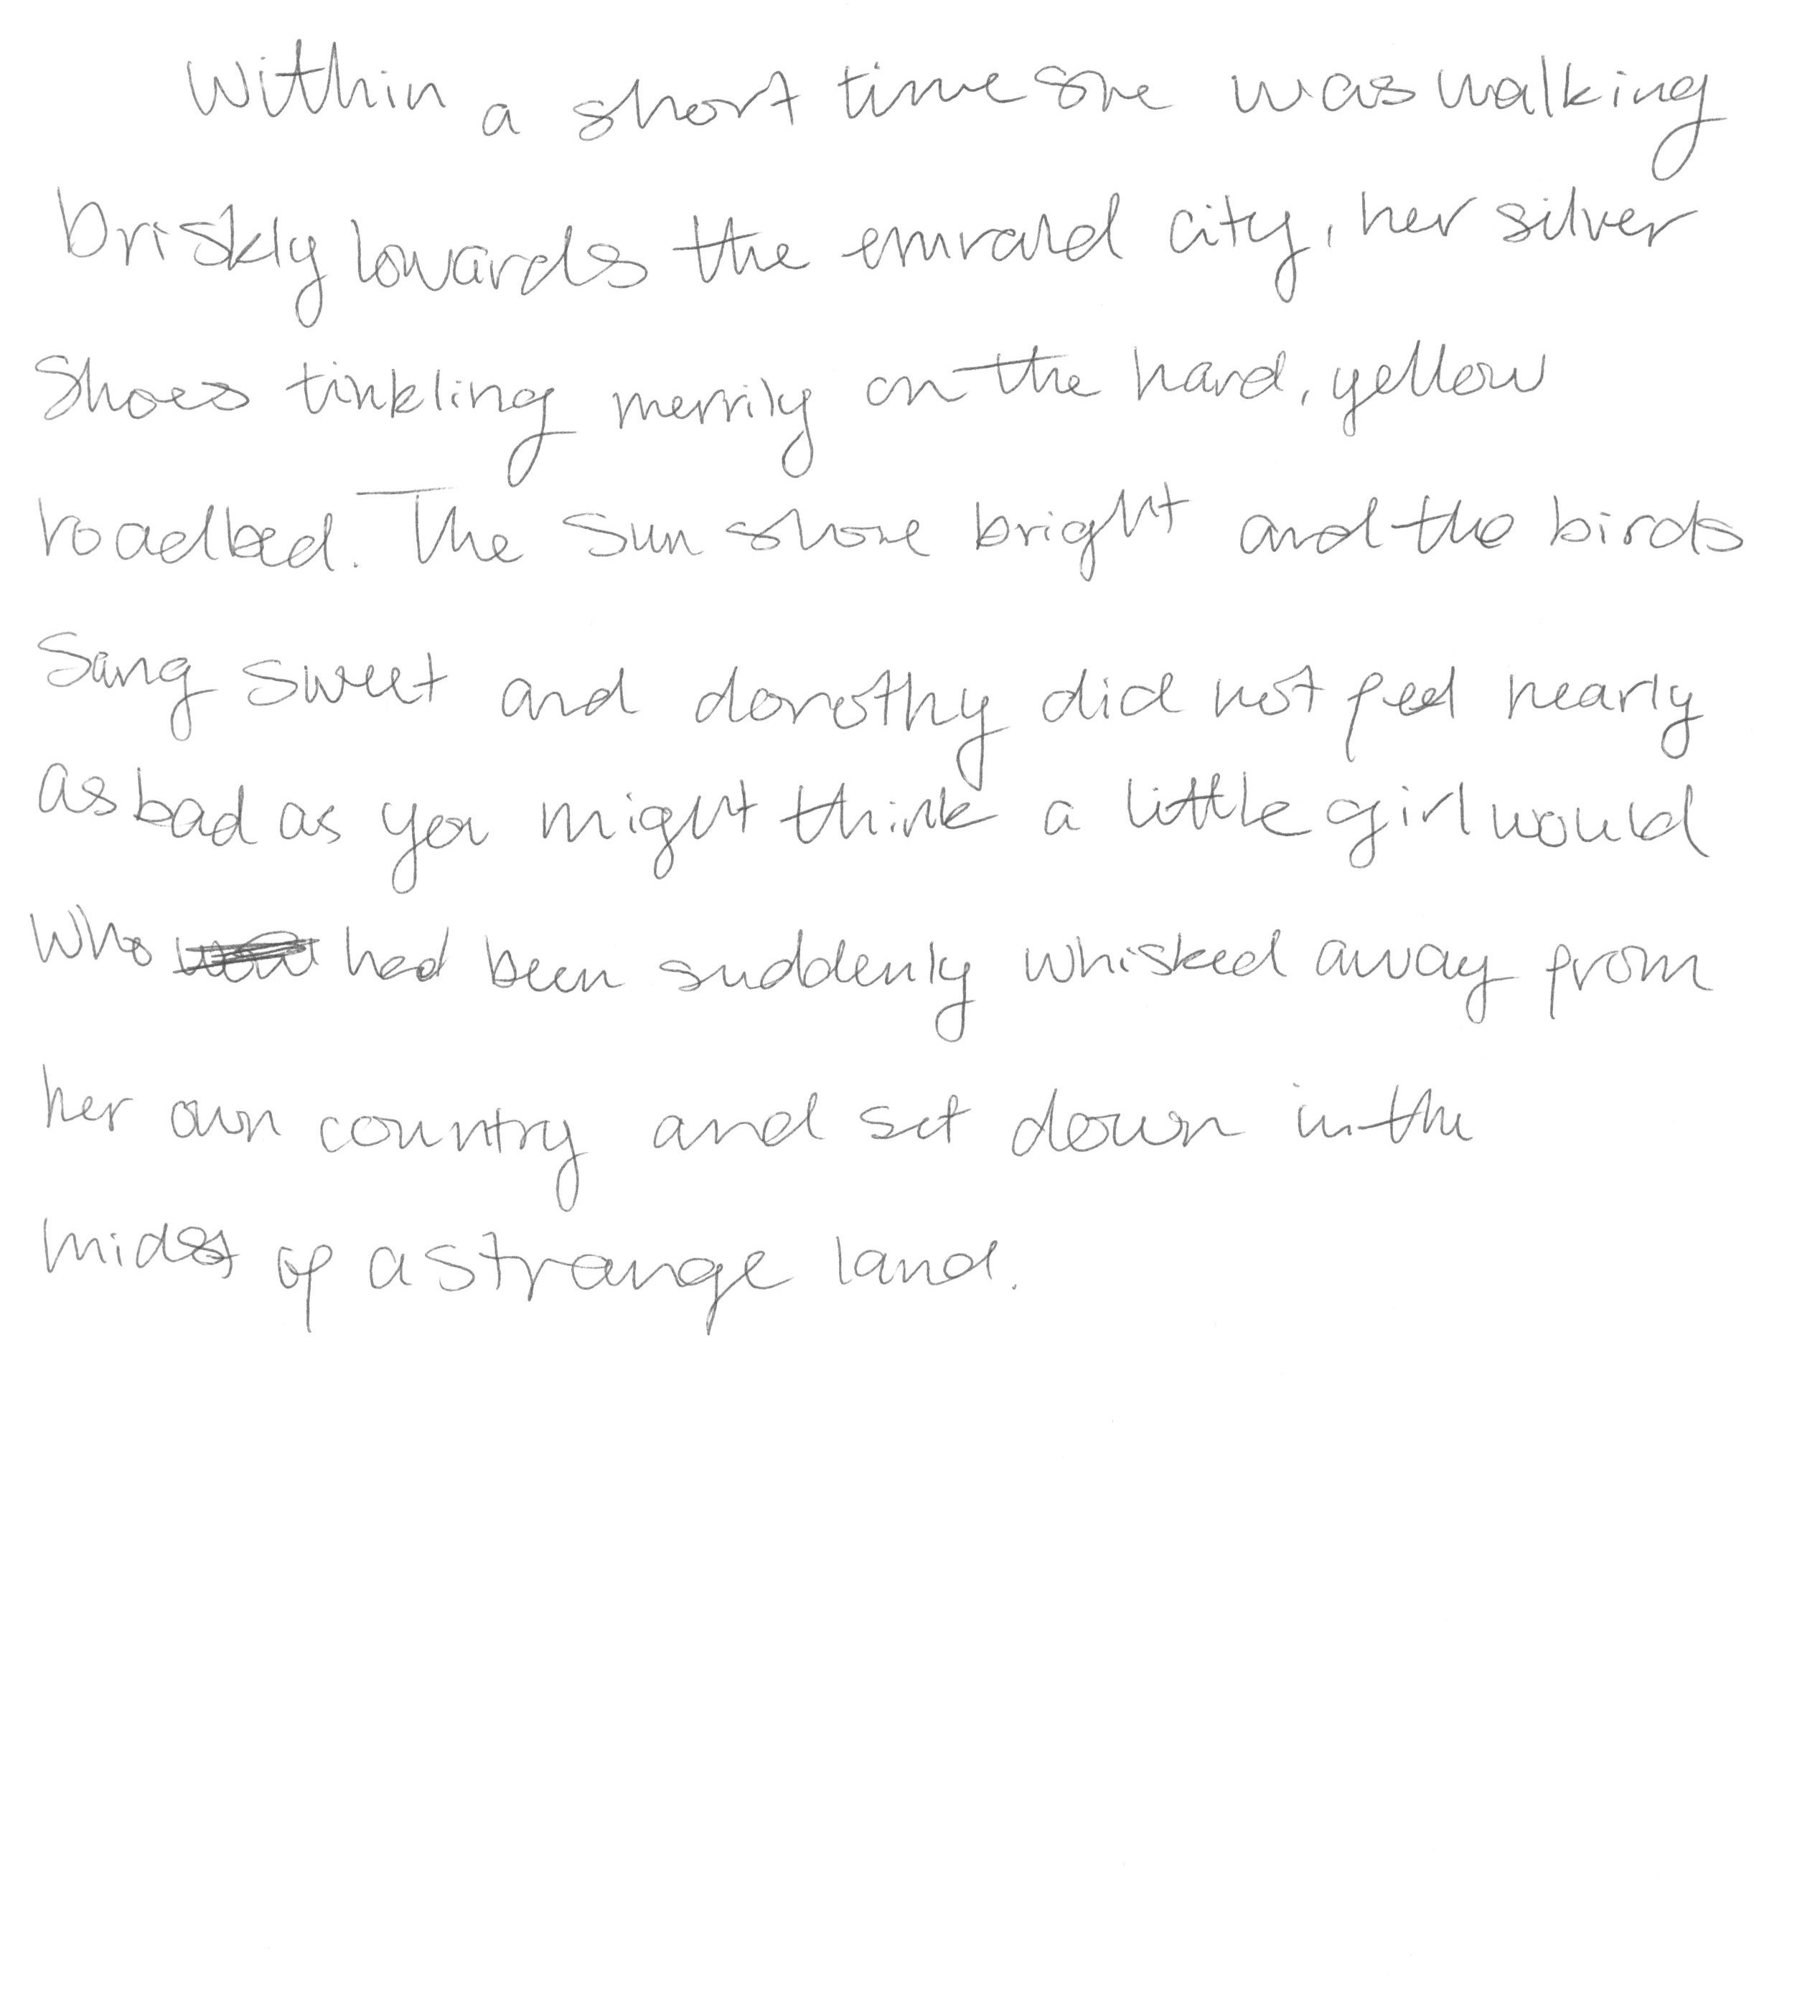 Within a short time she was walking
briskly towards the emrald city, her silver
Shoes tinkling merrily on the hard, yellow
roadbed. The sun shone bright and the birds
Sang sweet and dorothy did not feel nearly
as bad as you might think a little girl would
who had been suddenly whisked away from
her own country and set down in the
midst of a strange land.